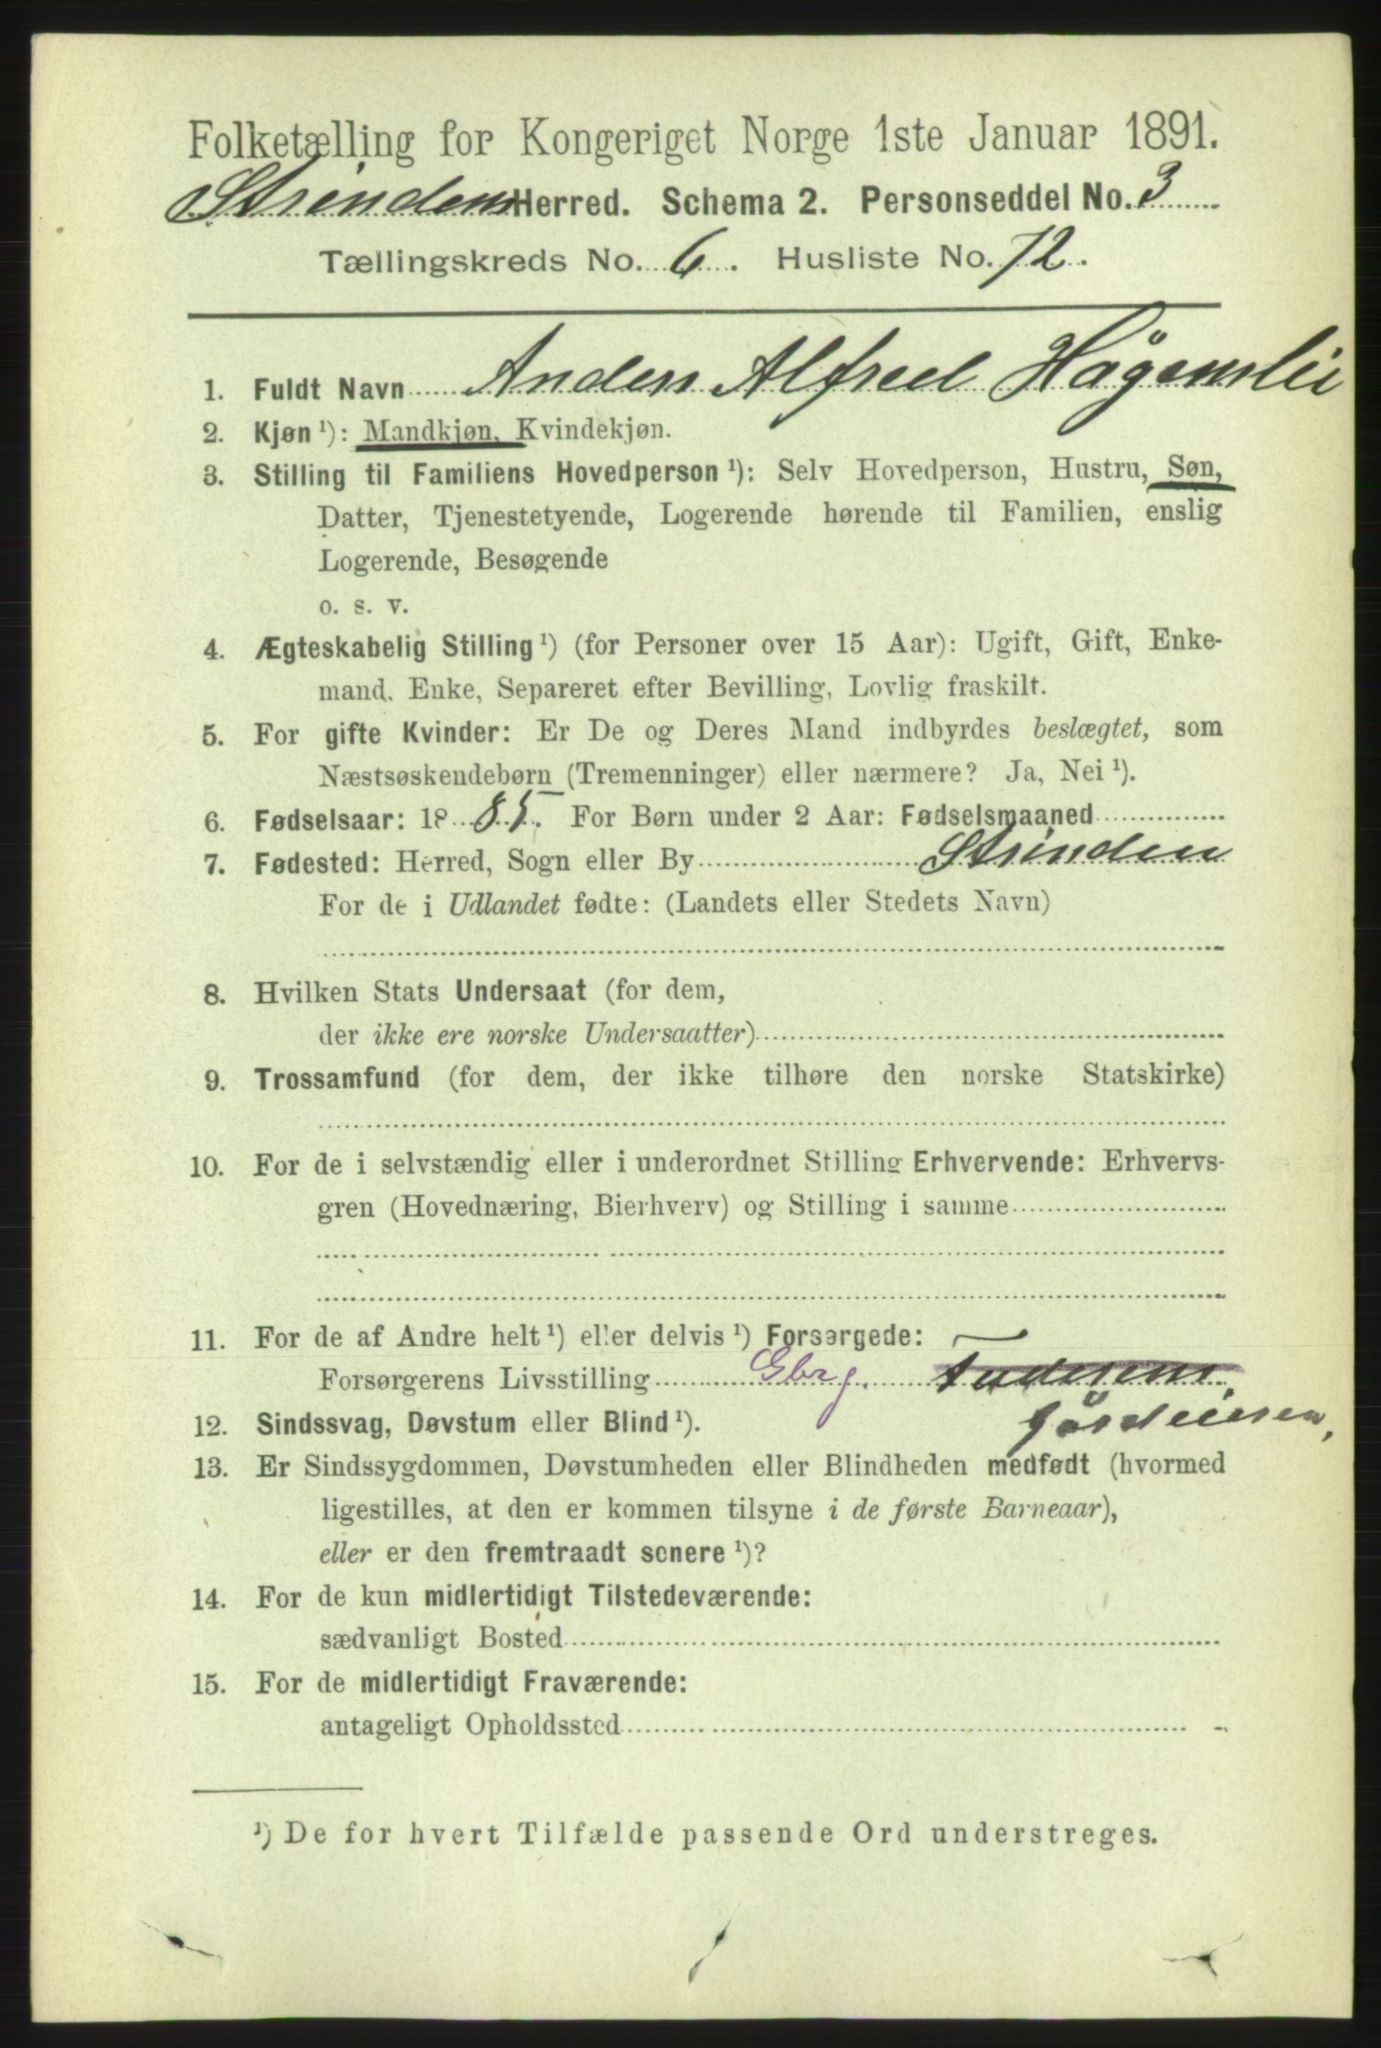 Folketælling for Kongeriget Norge 1ste Januar 1891.
Strindens Herred. Schema 2. Personseddel No. 3
Tællingskreds No. 6. Husliste No. 72.
1. Fuldt Navn Anders Alfred Hågenslie
2. Kjøn ¹): Mandkjøn, Kvindekjøn.
3. Stilling til Familiens Hovedperson ¹): Selv Hovedperson, Hustru, Søn,
Datter, Tjenestetyende, Logerende hørende til Familien, enslig
Logerende, Besøgende
o. s. v.
4. Ægteskabelig Stilling ¹) (for Personer over 15 Aar): Ugift, Gift, Enke-
mand, Enke, Separeret efter Bevilling, Lovlig fraskilt.
5. For gifte Kvinder: Er De og Deres Mand indbyrdes beslægtet, som
Næstsøskendebørn (Tremenninger) eller nærmere? Ja, Nei ¹).
6. Fødselsaar: 1885. For Børn under 2 Aar: Fødselsmaaned
7. Fødested: Herred, Sogn eller By Strinden
For de i Udlandet fødte: (Landets eller Stedets Navn)
8. Hvilken Stats Undersaat (for dem,
der ikke ere norske Undersaatter)
9. Trossamfund (for dem, der ikke tilhøre den norske Statskirke)
10. For de i selvstændig eller i underordnet Stilling Erhvervende: Erhvervs-
gren (Hovednæring, Bierhverv) og Stilling i samme
11. For de af Andre helt ¹) eller delvis ¹) Forsørgede:
Forsørgerens Livsstilling Gbrg.
12. Sindssvag, Døvstum eller Blind ¹).
13. Er Sindssygdommen, Døvstumheden eller Blindheden medfødt (hvormed
ligestilles, at den er kommen tilsyne i de første Barneaar),
eller er den fremtraadt senere ¹)?
14. For de kun midlertidigt Tilstedeværende:
sædvanligt Bosted
15. For de midlertidigt Fraværende:
antageligt Opholdssted
¹) De for hvert Tilfælde passende Ord understreges.